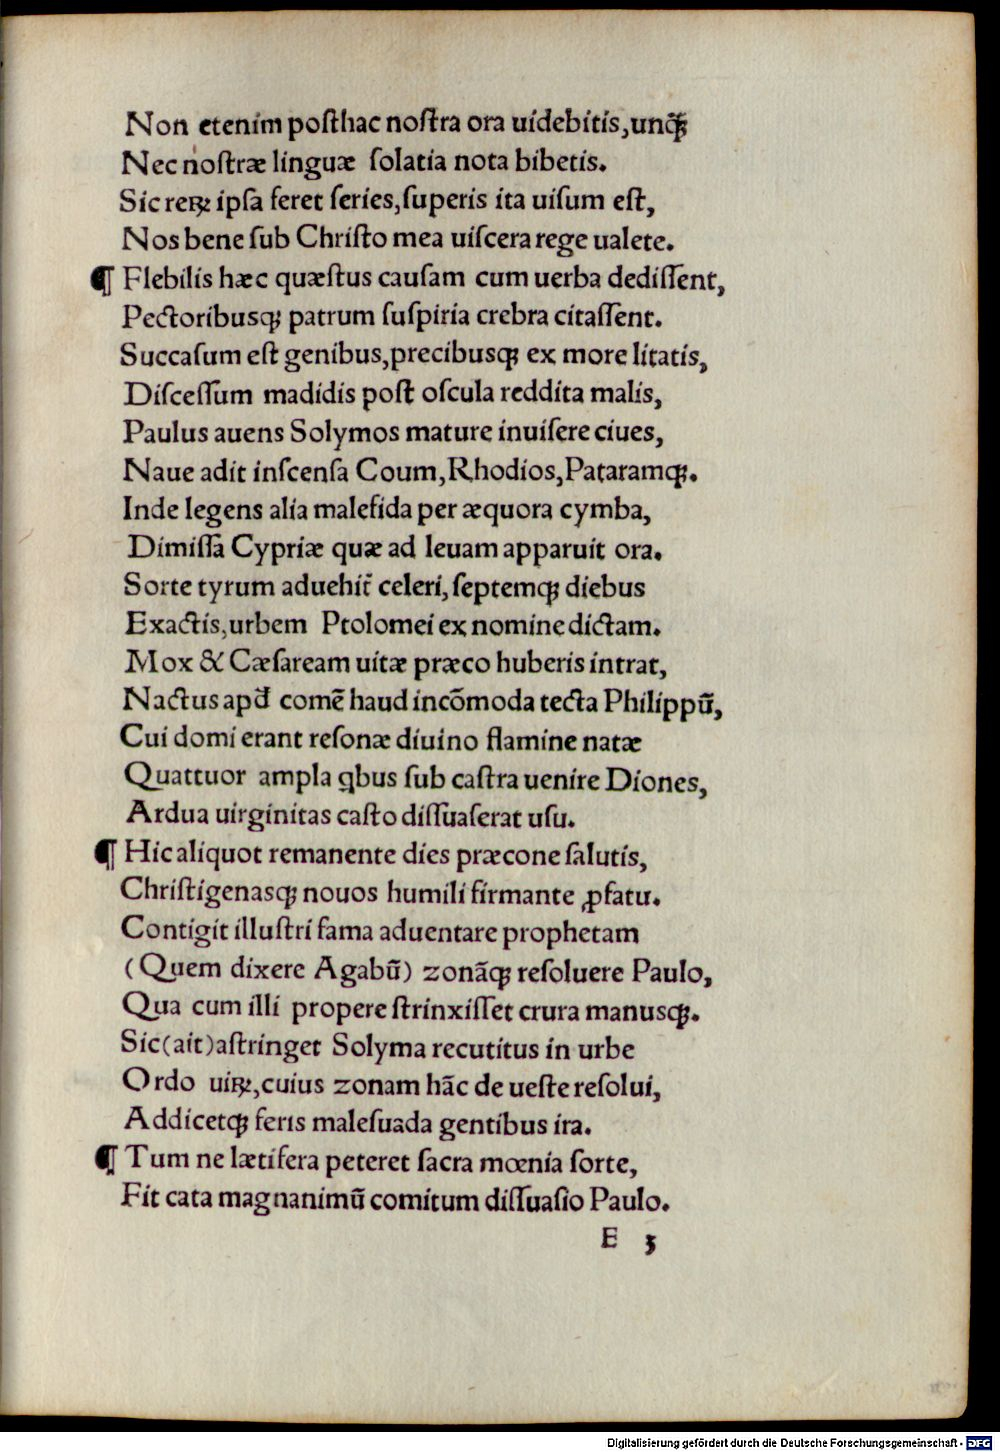 Non etenim poſthac noſtra ora uidebitis,unq̃ꝫ
Nec noſtræ linguæ ſolatia nota bibetis.
Sic reꝝ ipſa feret ſeries,ſuperis ita uiſum eſt,
Nos bene ſub Chriſto mea uiſcera rege ualete.
¶ Flebilis hæc quæſtus cauſam cum uerba dediſſent,
Pectoribusqꝫ patrum ſuſpiria crebra citaſſent.
Succaſum eſt genibus,precibusqꝫ ex more litatis,
Diſceſſum madidis poſt oſcula reddita malis,
Paulus auens Solymos mature inuiſere ciues,
Naue adit inſcenſa Coum,Rhodios,Pataramqꝫ.
Inde legens alia malefida per æquora cymba,
Dimiſſa Cypriæ quæ ad leuam apparuit ora.
Sorte tyrum aduehit̃ celeri,ſeptemqꝫ diebus
Exactis,urbem Ptolomei ex nomine dictam.
Mox & Cæſaream uitæ præco huberis intrat,
Nactus apd̃ comẽ haud incõmoda tecta Philippũ,
Cui domi erant reſonæ diuino flamine natæ
Quattuor ampla qbus ſub caſtra uenire Diones,
Ardua uirginitas caſto diſſuaſerat uſu.
¶ Hic aliquot remanente dies præcone ſalutis,
Chriſtigenasqꝫ nouos humili firmante ꝓfatu.
Contigit illuſtri fama aduentare prophetam
(Quem dixere Agabũ) zonãqꝫ reſoluere Paulo,
Qua cum illi propere ſtrinxiſſet crura manusqꝫ.
Sic(ait)aſtringet Solyma recutitus in urbe
Ordo uiꝝ,cuius zonam hãc de ueſte reſolui,
Addicetqꝫ feris maleſuada gentibus ira.
¶ Tum ne lætifera peteret ſacra mœnia ſorte,
Fit cata magnanimũ comitum diſſuaſio Paulo.
E 3
Digitalisierung gefördert durch die Deutsche Forschungsgemeinschaft - DFG